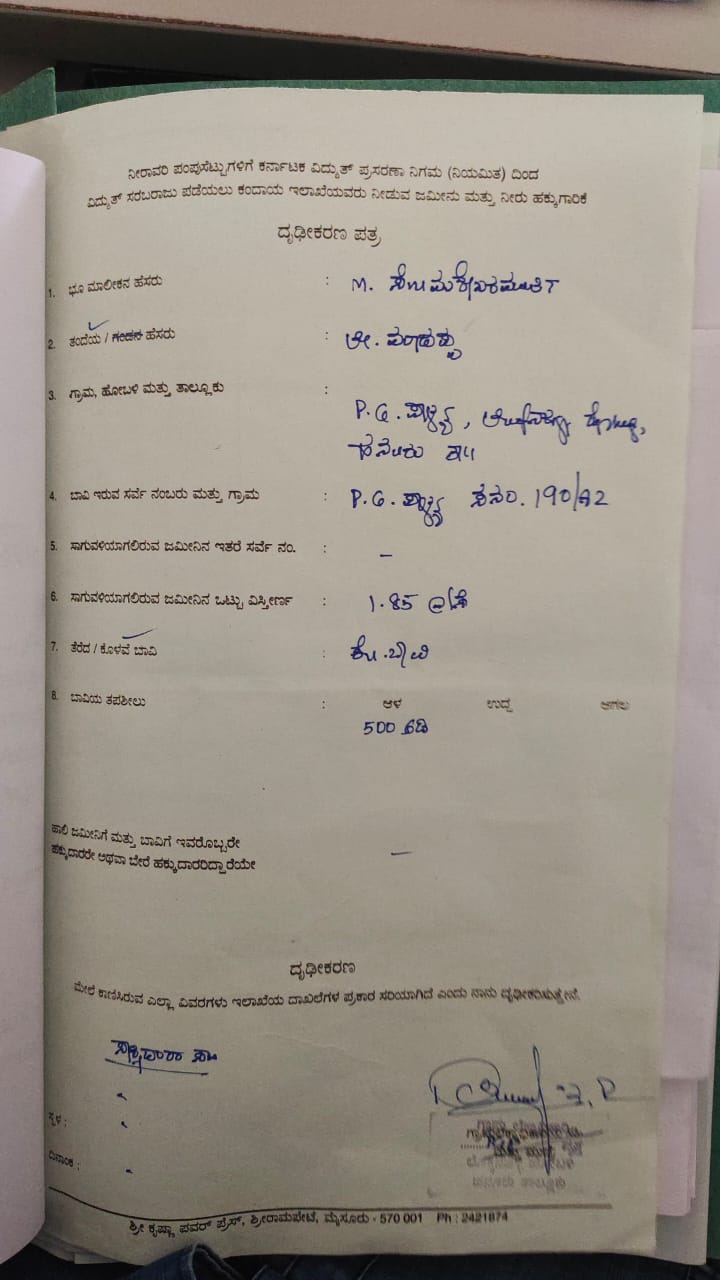 ನೀರಾವರಿ ಪಂಪುಸೆಟ್ಟುಗಳಿಗೆ ಕರ್ನಾಟಕ ವಿದ್ಯುತ್ ಪ್ರಸರಣಾ ನಿಗಮ (ನಿಯಮಿತ) ದಿಂದ
ವಿದ್ಯುತ್ ಸರಬರಾಜು ಪಡೆಯಲು ಕಂದಾಯ ಇಲಾಖೆಯವರು ನೀಡುವ ಜಮೀನು ಮತ್ತು ನೀರು ಹಕ್ಕುಗಾರಿಕೆ
ದೃಢೀಕರಣ ಪತ್ರ
1. ಭೂ ಮಾಲೀಕನ ಹೆಸರು : M.
2. ತಂದೆಯ / ಗಂಡನ ಹೆಸರು : ಶ್ರೀ.
3. ಗ್ರಾಮ, ಹೋಬಳಿ ಮತ್ತು ತಾಲ್ಲೂಕು :
P.G. ಪಾಳ್ಯ,
ಹನೂರು ತಾ||
4. ಬಾವಿ ಇರುವ ಸರ್ವೆ ನಂಬರು ಮತ್ತು ಗ್ರಾಮ : P.G. ಪಾಳ್ಯ ಸ.ನಂ. 190/A2
5. ಸಾಗುವಳಿಯಾಗಲಿರುವ ಜಮೀನಿನ ಇತರೆ ಸರ್ವೆ ನಂ. : –
6. ಸಾಗುವಳಿಯಾಗಲಿರುವ ಜಮೀನಿನ ಒಟ್ಟು ವಿಸ್ತೀರ್ಣ : 1.85
7. ತೆರೆದ / ಕೊಳವೆ ಬಾವಿ : ಕೊ.ಬಾವಿ
8. ಬಾವಿಯ ತಪಶೀಲು : ಆಳ ಉದ್ದ ಅಗಲ
500 ಅಡಿ
ಹಾಲಿ ಜಮೀನಿಗೆ ಮತ್ತು ಬಾವಿಗೆ ಇವರೊಬ್ಬರೇ
ಹಕ್ಕುದಾರರೇ ಅಥವಾ ಬೇರೆ ಹಕ್ಕುದಾರರಿದ್ದಾರೆಯೇ –
ದೃಢೀಕರಣ
ಮೇಲೆ ಕಾಣಿಸಿರುವ ಎಲ್ಲಾ ವಿವರಗಳು ಇಲಾಖೆಯ ದಾಖಲೆಗಳ ಪ್ರಕಾರ ಸರಿಯಾಗಿದೆ ಎಂದು ನಾನು ದೃಢೀಕರಿಸುತ್ತೇನೆ.
ಸ್ಥಳ :
ದಿನಾಂಕ :
ಶ್ರೀ ಕೃಷ್ಣಾ ಪವರ್ ಪ್ರೆಸ್, ಶ್ರೀರಾಮಪೇಟೆ, ಮೈಸೂರು - 570 001 Ph : 2421874